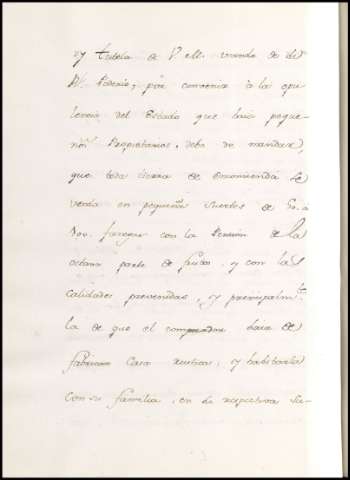 y tutela de V. M. usando de su
Rl. Poderio; por convenir à la opu
lencia del Estado que haia peque
ños Propietarios, debe de mandar,
que toda tierra de Encomienda se
venda en pequeñas suertes de 50. à
fanegas con la Pension de la
octava parte de frutos, y con las
calidades prevenidas, y principalmte.
la de que el comprador haia de
fabricar Casa rustica, y habitarla
con su familia, en la respectiva Su-